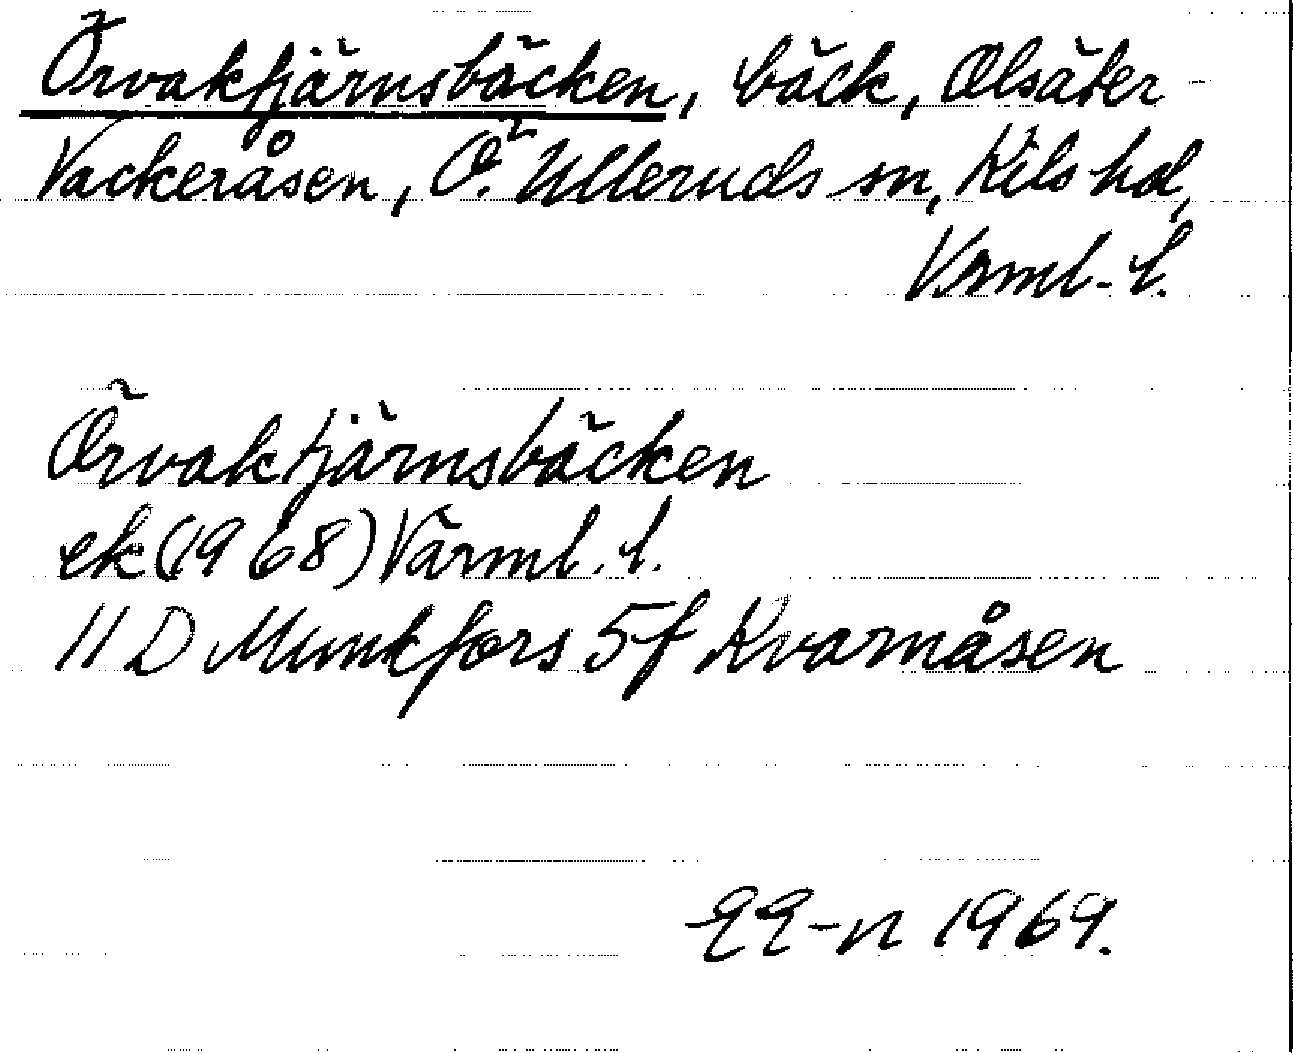 Örvaktjärnsbäcken, bäck, Olsäter-
Vackeråsen, Ö. Ulleruds sn, Kils hd,
Värml. l.
Örvaktjärnsbäcken
ek (1968) Värml. l.
11 D Munkfors 5f Kvarnåsen
EE-n 1969.